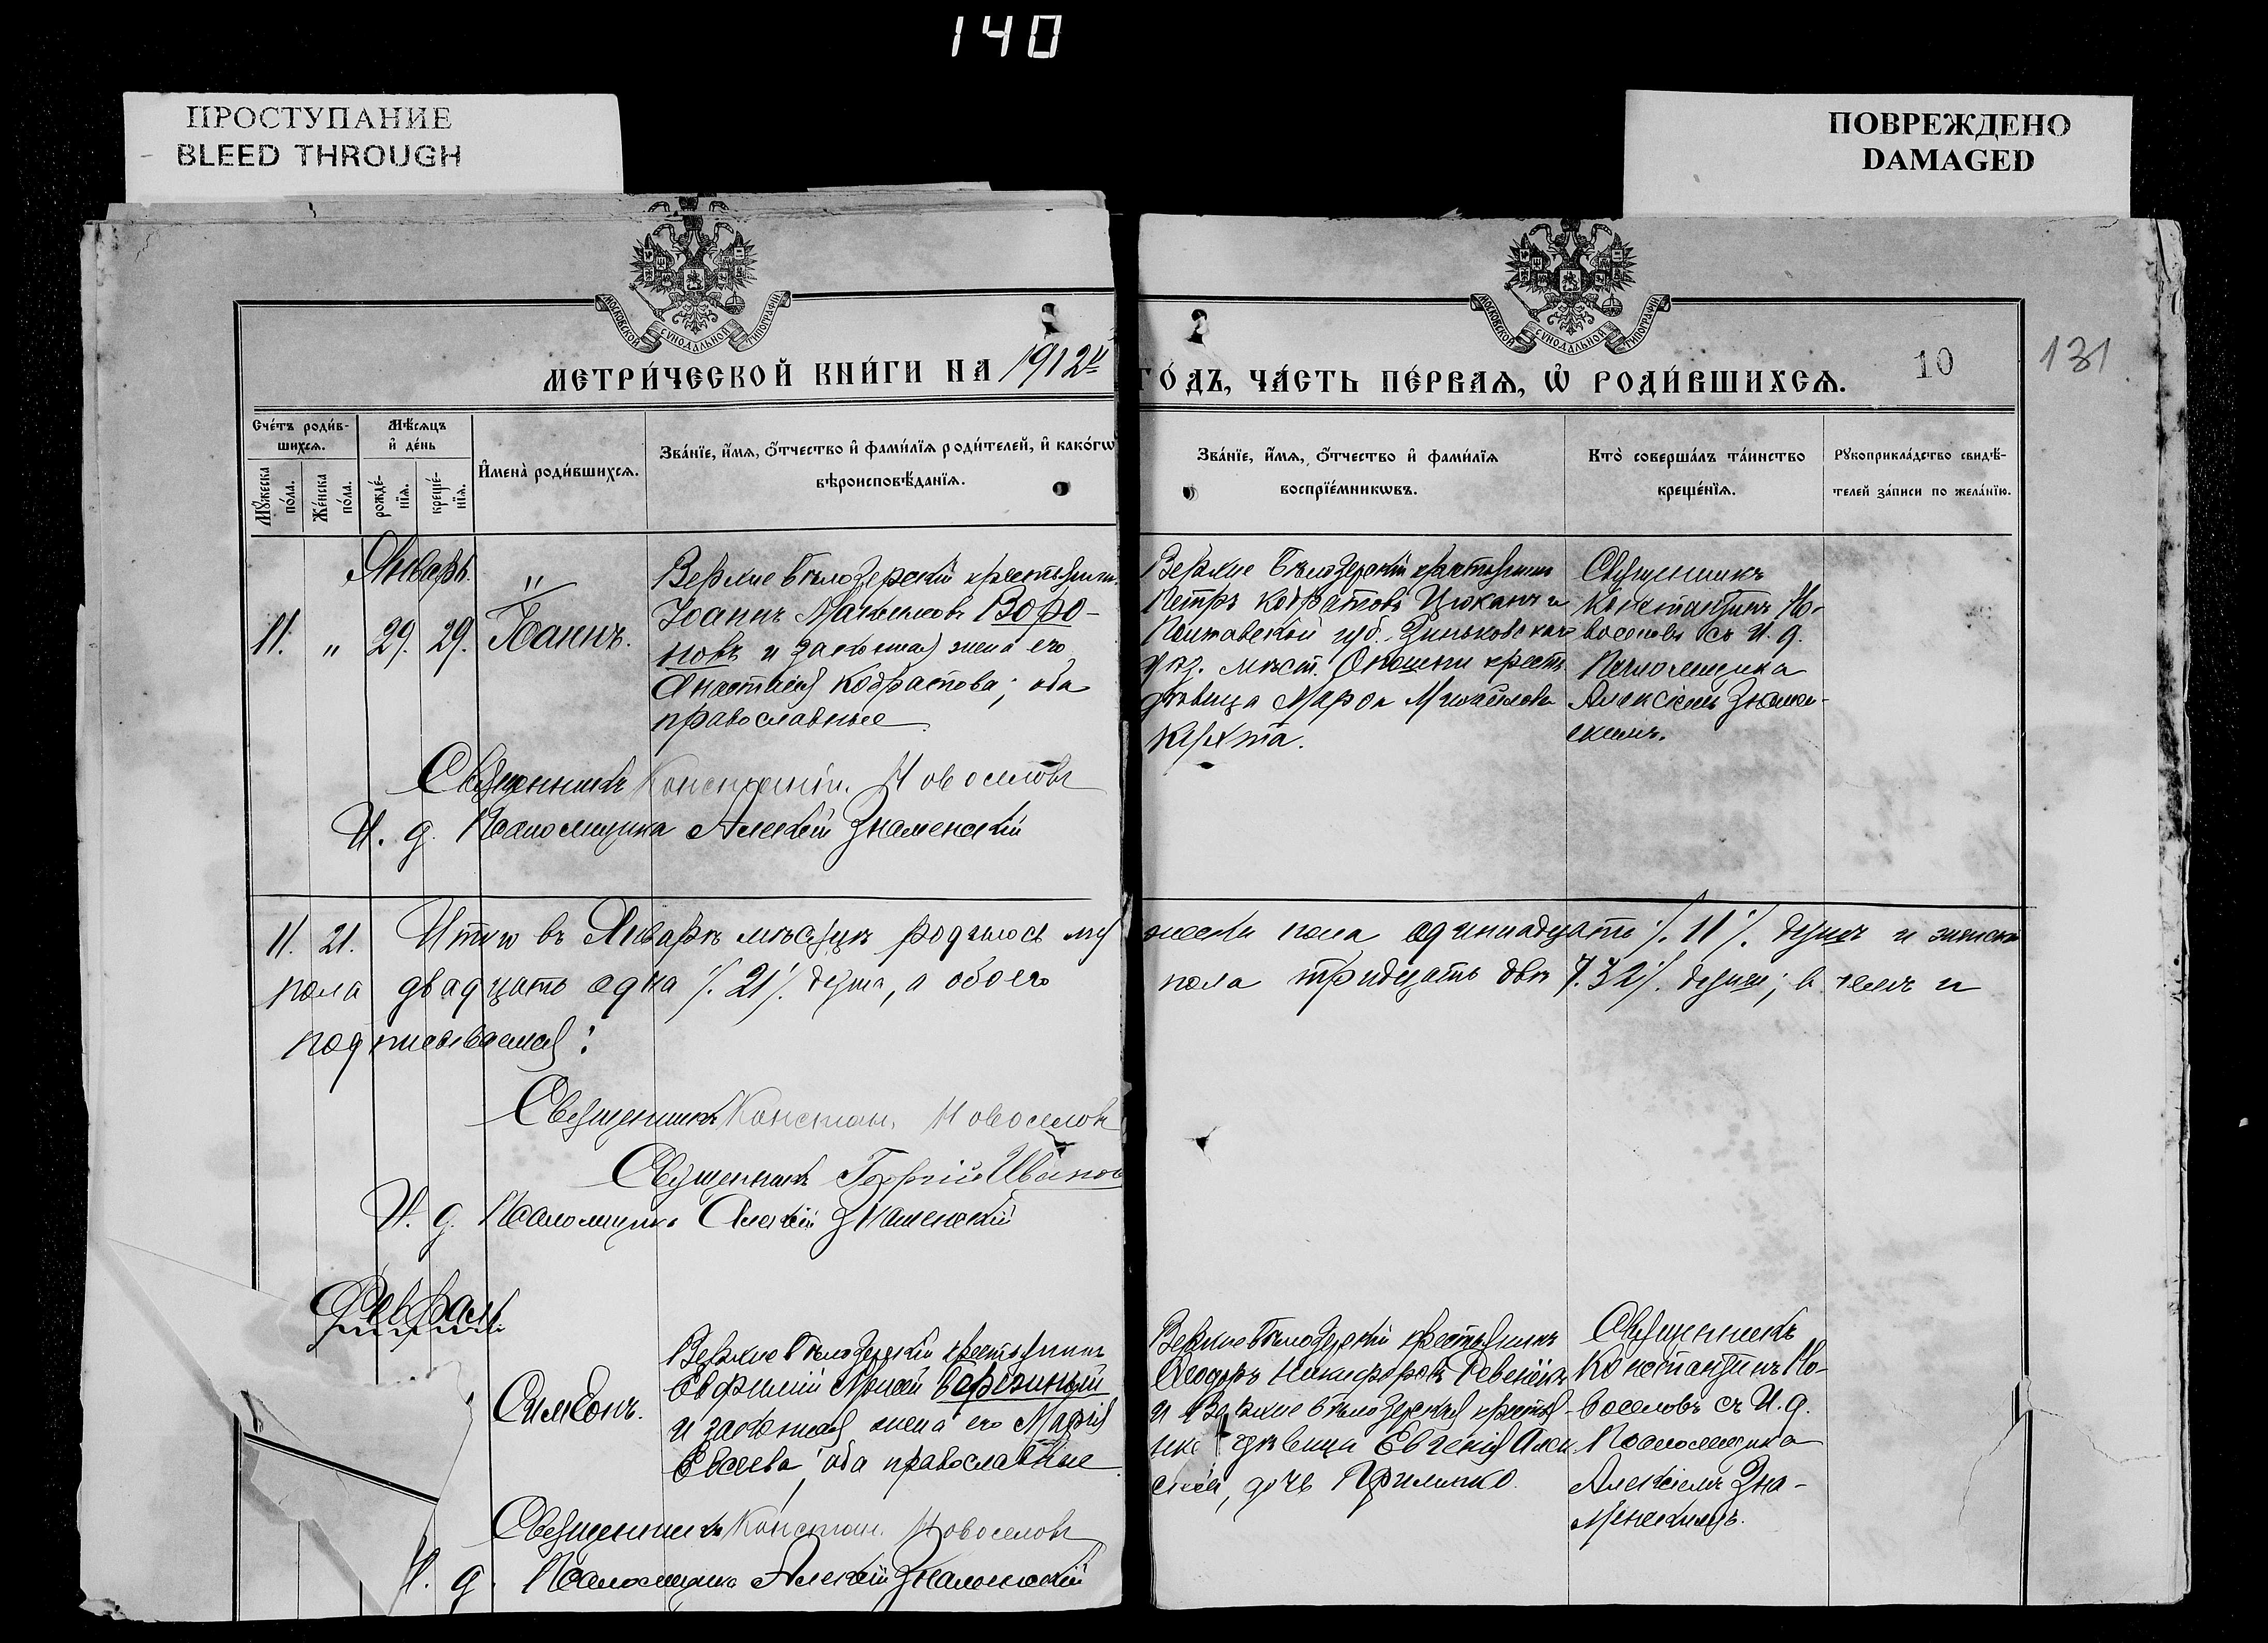 140
ПРОСТУПАНИЕ
BLEED THROUGH
ПОВРЕЖДЕНО
DAMAGED
МОСКОВСКОЙ СУНОДАЛЬНОЙ ТИПОГРАФІИ
МОСКОВСКОЙ СУНОДАЛЬНОЙ ТИПОГРАФІИ
МЕТРИ́ЧЕСКОЙ КНИ́ГИ НА 1912й ГО́ДЪ, ЧА́СТЬ ПЕ́РВАѦ, Ѡ҆ РОДИ́ВШИХСѦ.
10
131
Сче́тъ роди́в-
шихсѧ.
Мꙋ́жеска
по́ла.
Же́нска
по́ла.
Мѣ́сѧцъ
и҆ де́нь
рожде́-
нїѧ.
креще́-
нїѧ.
И҆мена̀ роди́вшихсѧ.
Зва́нїе, и҆́мѧ, ѻ҆́тчество и҆ фами́лїѧ роди́телей, и҆ како́гѡ
вѣроисповѣ́данїѧ.
Зва́нїе, и҆́мѧ, ѻ҆́тчество и҆ фами́лїѧ
воспрїе́мникѡвъ.
Кто̀ соверша́лъ та́инство
креще́нїѧ.
Рꙋкоприкла́дство свидѣ́-
телей за́писи по жела́нїю.
Январь.
11. " 29. 29. Іоаннъ.
Верхнебѣлозерскій крестьянин.
Іоаннъ Воро-
новъ и законная жена его
Анастасія Кодратова; оба
православные
Верхнебѣлозерскій крестьянинъ
Петръ Кодратовъ и
Полтавской губ. Зиньковскаго
уѣз. мѣст. Опошни крест.
дѣвица Михайлова
Кирхта.
Священникъ
Константинъ Но-
воселовъ съ И. д.
Псаломщика
Алексіемъ Знамен-
скимъ.
Священникъ Константин. Новоселовъ
И. д. Псаломщика Алексій Знаменскій
11. 21. Итого въ Январѣ мѣсяцѣ родилось му
жеска пола одиннадцать ./. 11 ./. душъ и женска
пола двадцать одна ./. 21 ./. душа, а обоего
пола тридцать двѣ ./. 32 ./. души; в чемъ и
подписываемся:
Священникъ Констан. Новоселовъ
Священникъ Георгій Иванов
И. д. Псаломщика Алексій Знаменскій
Февраль
Симеонъ.
Верхнебѣлозерскій крестьянинъ
Евфимій
и законная жена его Марія
Евсеева; оба православные
Верхнебѣлозерскій крестьянинъ
Ѳеодоръ Никифоровъ
и Верхнебѣлозерская крестья-
нка дѣвица Евгенія Алек
сіева, дочь Прилипко.
Священникъ
Константинъ Но-
воселовъ съ И. д.
Псаломщика
Алексіемъ Зна-
менскимъ.
Священникъ Констан. Новоселовъ
И. д. Псаломщика Алексій Знаменскій